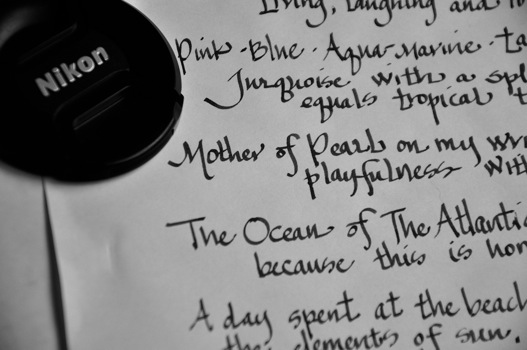 Nikon
Living, laughing and
Pink-Blue-Aqua-Marine-
Turquoise with a
equals tropical
Mother of Pearl on my
playfulness
The Ocean of The
because this is
A day spent at the beach
elements of sun.